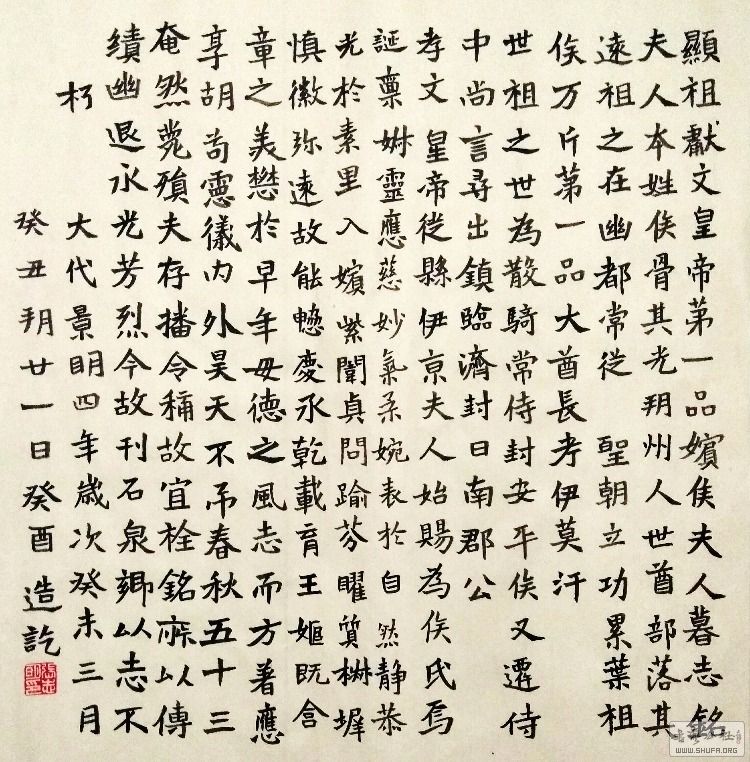 顯祖獻文皇帝第一品嬪侯夫人墓志銘
夫人本姓侯骨其先朔州人世酋部落其
遠祖之在幽都常從 聖朝立功累葉祖
俟万斤第一品大酋長考伊莫汗
世祖之世為散騎常侍封安平侯又遷侍
中尚書尋出鎮臨濟封日南郡公
孝文 皇帝徙縣伊京夫人始賜為侯氏焉
誕稟姌靈應慈妙氣柔婉表於自然静恭
光於素里入嬪紫闈貞問踰芬曜質椒墀
慎徽弥遠故能戀慶承乾載育王姬既含
章之美懋於早年毋德之風志而方著應
享胡苟霊儀內外昊天不吊春秋五十三
奄然薨殞夫存播令稱故宜栓銘庥以傳
績幽退永光芳烈今故刊石泉鄉以志不
朽
大代景明四年歲次癸未三月
癸丑朔廿一日癸酉造訖
WWW.SHUFA.ORG